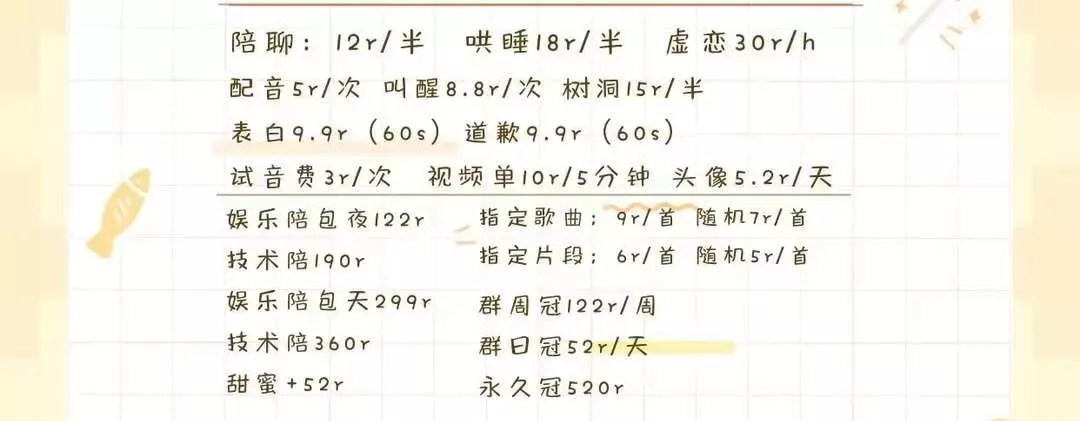 陪聊：12r/半 哄睡18r/半 虚恋30r/h
配音5r/次 叫醒8.8r/次 树洞15r/半
表白9.9r（60s）道歉9.9r（60s）
试音费3r/次 视频单10r/5分钟 头像5.2r/天
娱乐陪包夜122r
技术陪190r
娱乐陪包天299r
技术陪360r
甜蜜+52r
指定歌曲：9r/首 随机7r/首
指定片段：6r/首 随机5r/首
群周冠122r/周
群日冠52r/天
永久冠520r